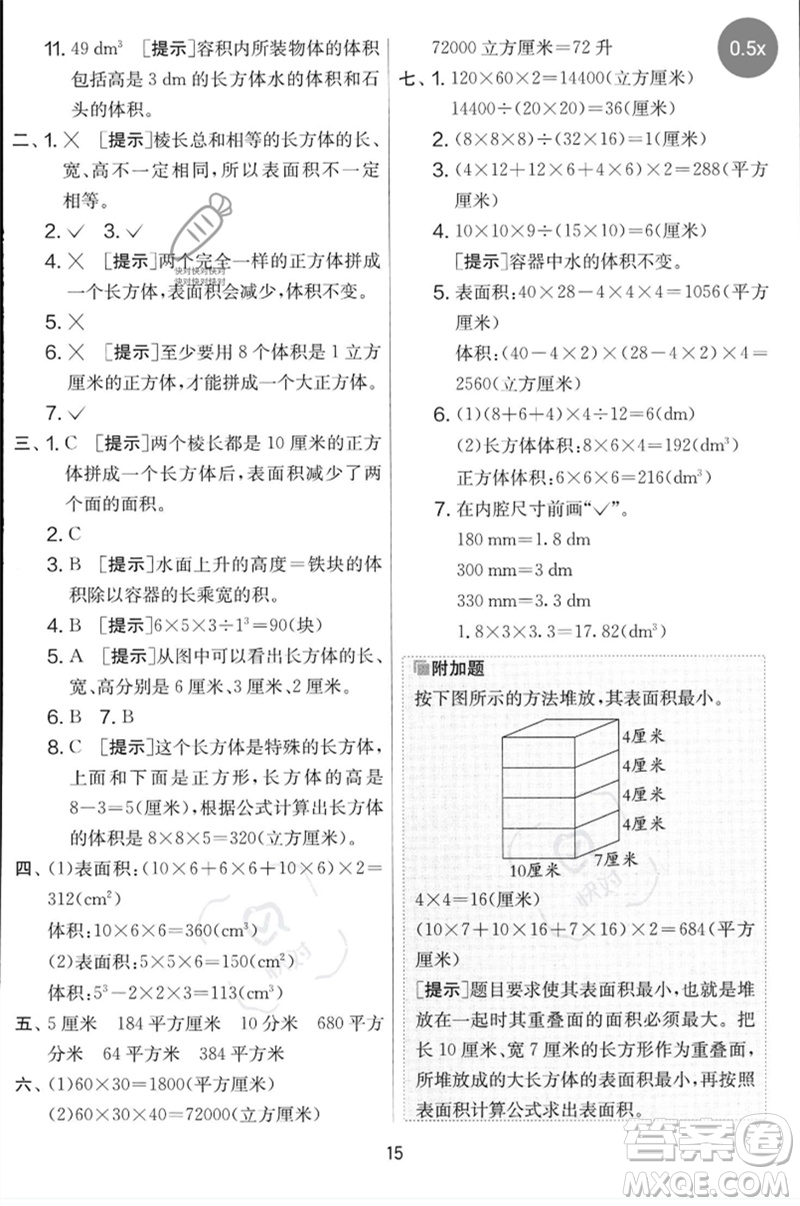 11. 49 dm³ [提示]容积内所装物体的体积
包括高是 3 dm 的长方体水的体积和石
头的体积。
二、1. × [提示]棱长总和相等的长方体的长、
宽、高不一定相同,所以表面积不一定
相等。
2. ✓ 3. ✓
4. × [提示]两个完全一样的正方体拼成
一个长方体,表面积会减少,体积不变。
5. ×
6. × [提示]至少要用 8 个体积是 1 立方
厘米的正方体,才能拼成一个大正方体。
7. ✓
三、1. C [提示]两个棱长都是 10 厘米的正方
体拼成一个长方体后,表面积减少了两
个面的面积。
2. C
3. B [提示]水面上升的高度=铁块的体
积除以容器的长乘宽的积。
4. B [提示]6×5×3÷1³=90(块)
5. A [提示]从图中可以看出长方体的长、
宽、高分别是 6 厘米、3 厘米、3 厘米。
6. B 7. B
8. C [提示]这个长方体是特殊的长方体,
上面和下面是正方形,长方体的高是
8-3=5(厘米),根据公式计算出长方体
的体积是 8×8×5=320(立方厘米)。
四、(1)表面积:(10×6+6×6+10×6)×2=
312(cm²)
体积:10×6×6=360(cm³)
(2)表面积:5×5×6=150(cm²)
体积:5³-2×2×3=113(cm³)
五、5 厘米 184 平方厘米 10 分米 680 平方
分米 64 平方米 384 平方米
六、(1)60×30=1800(平方厘米)
(2)60×30×40=72000(立方厘米)
72000 立方厘米=72 升
七、1. 120×60×2=14400(立方厘米)
14400÷(20×20)=36(厘米)
2. (8×8×8)÷(32×16)=1(厘米)
3. (4×12+12×6+4×6)×2=288(平方
厘米)
4. 10×10×9÷(15×10)=6(厘米)
[提示]容器中水的体积不变。
5. 表面积:40×28-4×4×4=1056(平方
厘米)
体积:(40-4×2)×(28-4×2)×4=
2560(立方厘米)
6. (1)(8+6+4)×4÷12=6(dm)
(2)长方体体积:8×6×4=192(dm³)
正方体体积:6×6×6=216(dm³)
7. 在内腔尺寸前画“✓”。
180 mm=1.8 dm
300 mm=3 dm
330 mm=3.3 dm
1.8×3×3.3=17.82(dm³)
附加题
按下图所示的方法堆放,其表面积最小。
4厘米
4厘米
4厘米
4厘米
10厘米 7厘米
4×4=16(厘米)
(10×7+10×16+7×16)×2=684(平方
厘米)
[提示]题目要求使其表面积最小,也就是堆
放在一起时其重叠面的面积必须最大。把
长 10 厘米、宽 7 厘米的长方形作为重叠面,
所堆放成的大长方体的表面积最小,再按照
表面积计算公式求出表面积。
15
0.5x
快对快对快对
快对快对快对
快对
快对
答案卷
MXQE.COM